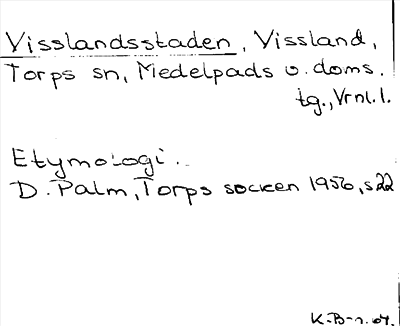 Visslandsstaden, Vissland,
Torps sn, Medelpads v. doms.
tg., Vrnl. l.
Etymologi.
D. Palm, Torps socken 1956, s 22